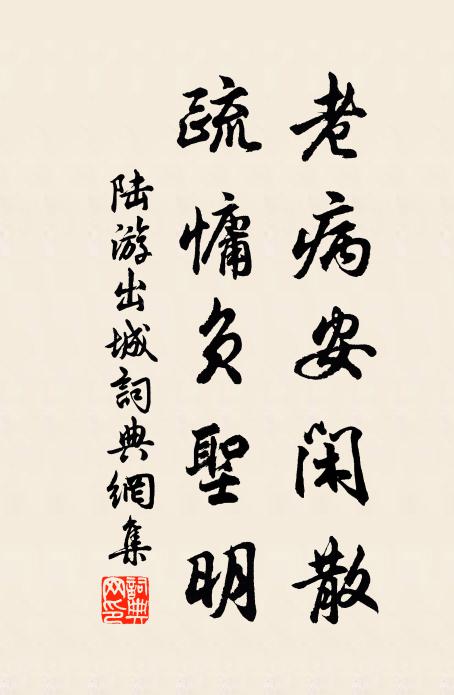 老病安闲散
疏慵负聖明
陆游出城詞典網集
詞典网印